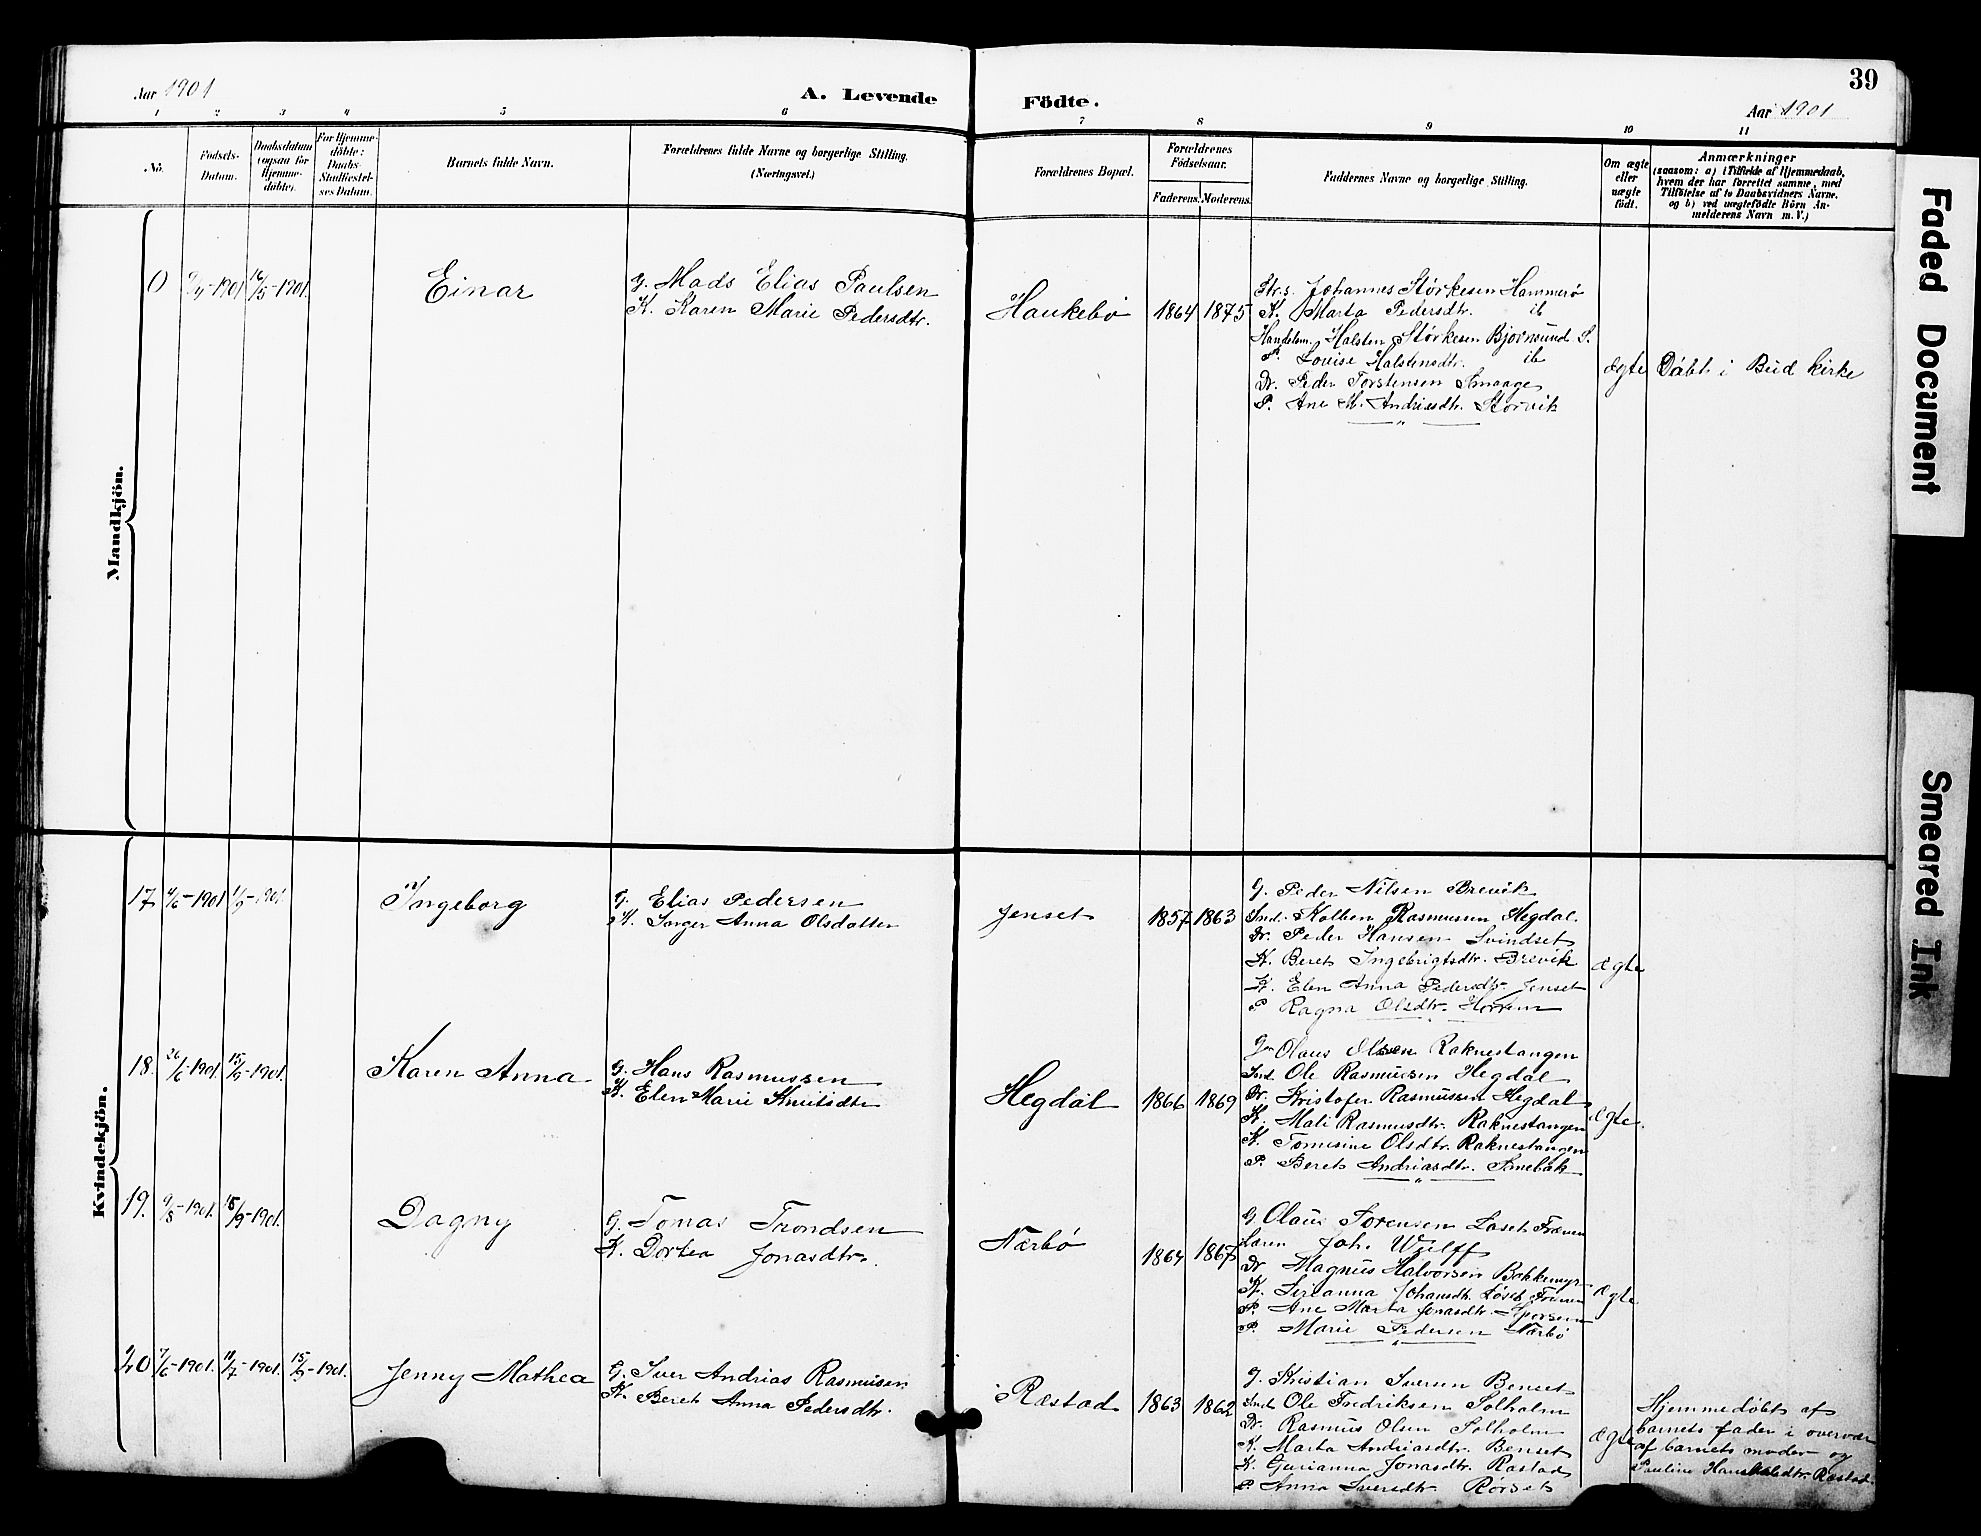 39
Aar 1901
A. Levende Födte.
Aar 1901
1 2 3 4 5 6 7 8 9 10 11
No.
Födsels-Datum.
Daabsdatum (ogsaa for Hjemme-döbte).
For Hjemme-döbte: Daabs-Stadfæstel-ses Datum.
Barnets fulde Navn.
Forældrenes fulde Navne og borgerlige Stilling.
(Næringsvei.)
Forældrenes Bopæl.
Forældrenes Födselsaar.
Faderens. Moderens.
Faddernes Navne og borgerlige Stilling.
Om ægte eller uægte födt.
Anmærkninger
(saasom: a) i Tilfælde af Hjemmedaab,
hvem der har forrettet samme, med
Tilföielse af to Daabsvidners Navne.
og b) ved uægtefödte Börn An-
melderens Navn m. V.)
Mandkjön.
0 9/4-1901 16/5-1901.
Einar
G. Mads Elias Paulsen
K. Karen Marie Pedersdtr.
Haukebø
1864 1875
Johannes Størkesen Hammerø
K. Marta Pedersdtr. ib
Handelsm. Halsten Størkesen Bjornsund S.
P. Louise Halstensdtr. ib
Dr. Peder Torstensen Smaage
P. Ane M. Andriasdtr. Storvik
ægte
Døbt i Bud kirke
Kvindekjön.
17 4/6-1901 1/9-1901.
Ingeborg
G. Elias Pedersen
K. Anna Olsdatter
Jenset
1857 1863
G. Peder Nilsen Brevik
Ind. Kolben Rasmussen Hegdal.
Dr. Peder Hansen Svindset
K. Beret Ingebrigtsdtr. Brevik
K. Elen Anna Pedersdtr. Jenset
P. Ragna Olsdtr. Horrem
ægte
18. 26/6-1901. 15/9-1901.
Karen Anna
G. Hans Rasmussen
K. Elen Marie Knutsdtr
Hegdal
1866 1869
Olaus Olsen Raknestangen
Ind. Ole Rasmussen Hegdal
Dr. Kristofer Rasmussen Hegdal
K. Mali Rasmusdtr. Raknestangen
K. Tomisine Olsdtr. Raknestangen
P. Beret Andriasdtr. Smebak
ægte.
19. 9/8-1901. 15/9-1901.
Dagny
G. Tomas Trondsen
K. Dortea Jonasdtr.
Nærbø
1864 1867
G. Olaus Sorensen Træen
Læren Joh. Wulff
Dr. Magnus Halvorsen Bakkemyr
K. Serianna Johansdtr.
P. Ane Marta Jonasdtr.
P. Marie Pedersen Nærbø
ægte.
20 7/6-1901. 11/7-1901. 15/9-1901.
Jenny Mathea
G. Iver Andrias Rasmussen
K. Beret Anna Pedersdtr.
Ræstad
1863 1862
G. Kristian Iversen Benset
Ind. Ole Fredriksen Solholm
Dr. Rasmus Olsen Solholm
K. Marta Andriasdtr. Benset
K. Gurianna Jonasdtr. Rastad
P. Anna Iversdtr. Rørset
ægte
Hjemmedøbt af
barnets fader i overvær
af barnets moder og
Pauline Ræstad.
Faded Document
Smeared Ink